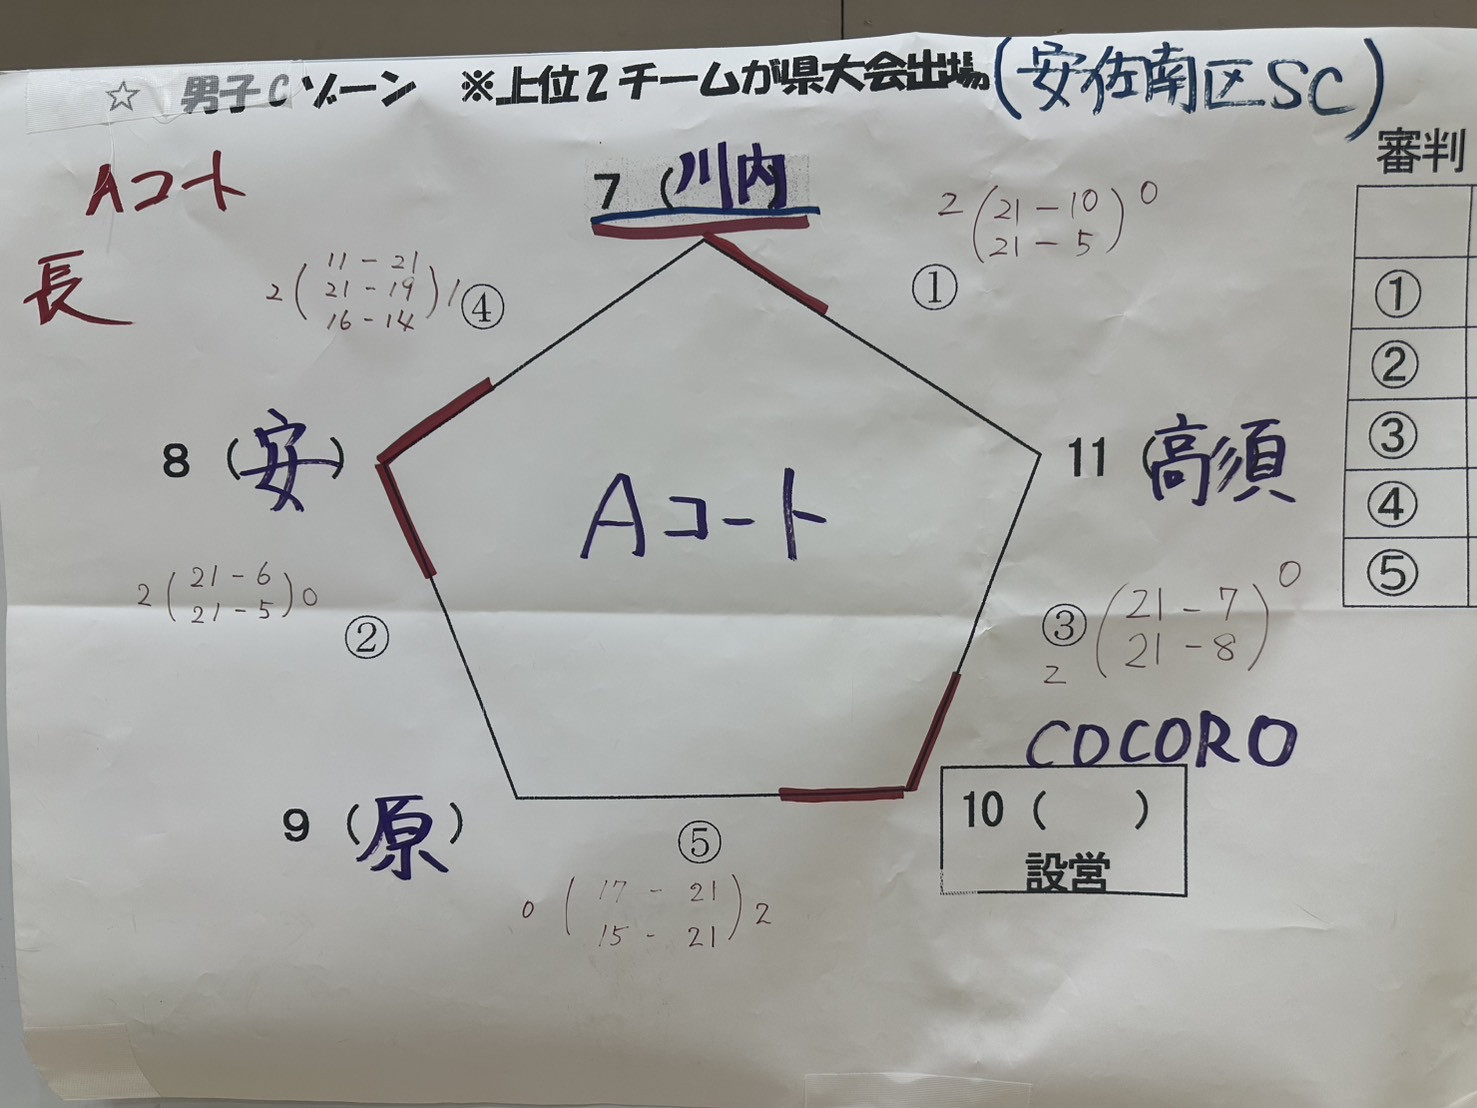 ☆ 男子Cゾーン ※上位2チームが県大会出場(安佐南区SC)
審判
Aコート
長
7 (川内)
2(21-10)0
21-5
①
2(11-21)1
21-19
16-14
④
8 (安)
11 (高須
Aコート
①
②
③
④
⑤
2(21-6)0
21-5
②
③
2(21-7)0
21-8
COCORO
10 ( )
設営
9 (原)
⑤
0(17-21)2
15-21